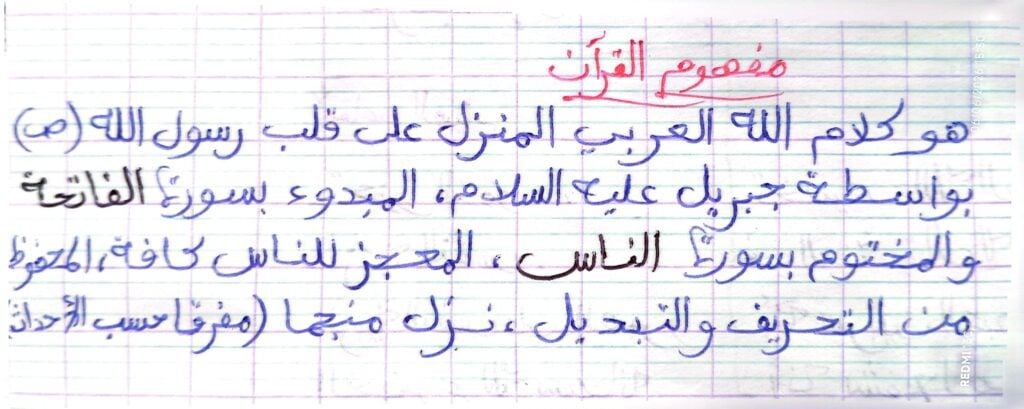 مفهوم القرآن
هو كلام الله العربي المنزل على قلب رسول الله (ص)
بواسطة جبريل عليه السلام، المبدوء بسورة الفاتحة
والمختوم بسورة الناس، المعجز للناس كافة، المحفوظ
من التحريف والتبديل، نزل منجما (مفرقا حسب الأحداث
REDMI